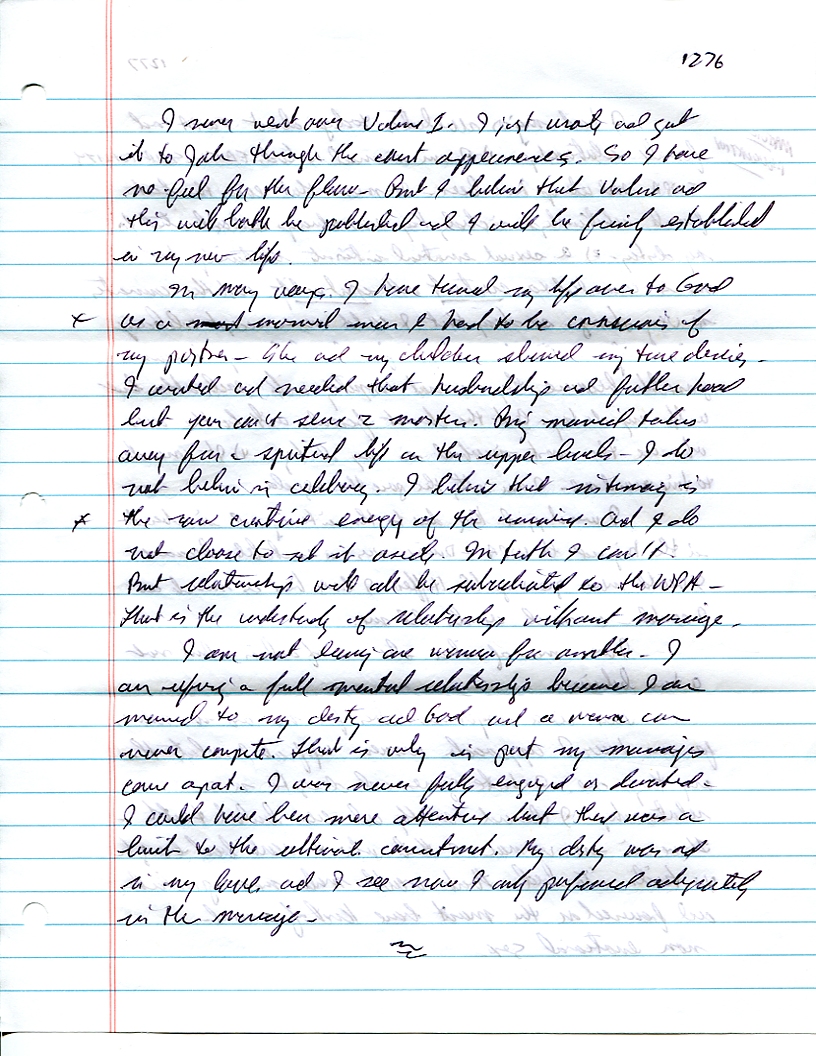 1276
I never went over Volume I. I just wrote and got
it to Jah through the court appearances. So I have
no feel for the flow - But I believe that Volume and
this will both be published and I will be firmly established
in my new life.
In many ways I have turned my life over to God
x as a married man I had to be conscious of
my partner - She and my children shared my
I wanted and needed that husbandship and fatherhood
but you can't serve 2 masters. Being married takes
away from a spiritual life on the upper levels - I do
not believe in celibacy. I believe that intimacy is
x the raw creative energy of the universe. And I do
not choose to set it aside. In truth I can't.
But relationships will all be subordinated to the WPA -
that is the understudy of relationship without marriage.
I am not leaving one woman for another - I
am a full relationship because I am
married to my destiny and God and a woman can
never compete. That is only in part my marriages
came apart. I was never fully engaged or devoted.
I could have been more attentive but there was a
limit to the ultimate commitment. My destiny was not
in my love and I see now I only performed adequately
in the marriage -